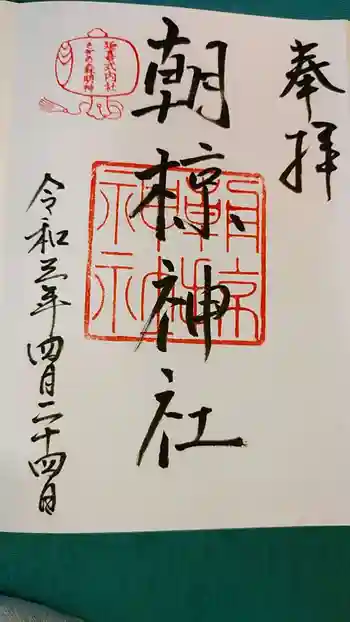 奉拝
朝椋神社
延喜式内社
令和三年四月二十四日